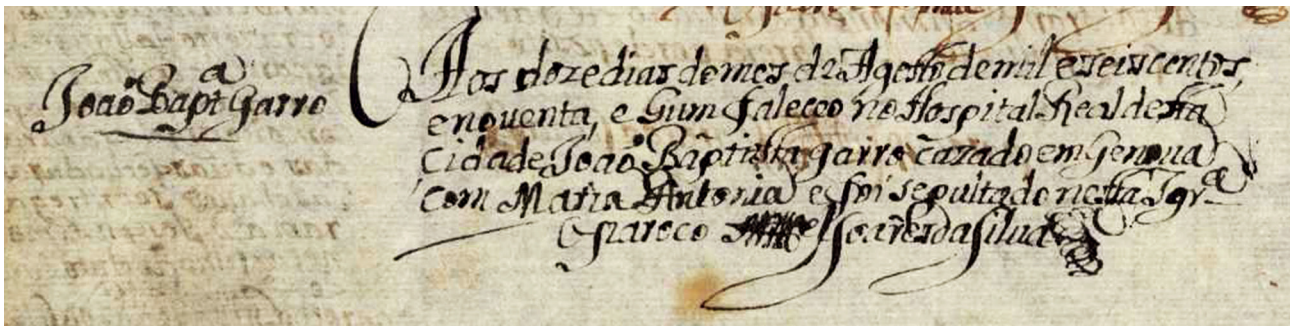 João Bapt.ª Garro
Aos doze dias do mes de Agosto de mil e seiscentos,
e noventa, e hum faleceo no Hospital Real desta
Cidade João Baptista garro cazado em Genoua
com Maria Antonia e foi sepultado nesta Igr.ª
O Paroco Soares da Silua